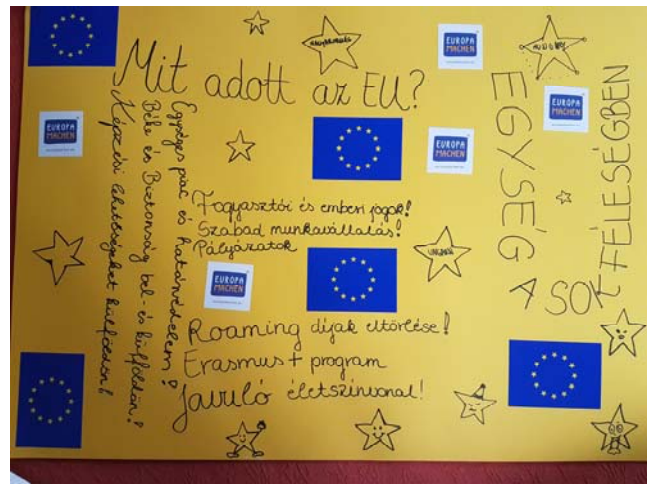 Mit adott az EU?
EUROPA
MACHEN
EUROPA
MACHEN
EUROPA
MACHEN
EUROPA
MACHEN
EUROPA
MACHEN
EGYSÉG A SOKFÉLESÉGBEN
Egységes piac és határvédelem!
Béke és Biztonság bel- és külföldön!
Képzési lehetőségeket külföldön!
Fogyasztói és emberi jogok!
Szabad munkavállalás!
Pályázatok
UNGARN
Roaming díjak eltörlése!
Erasmus+ program
Javuló életszínvonal!